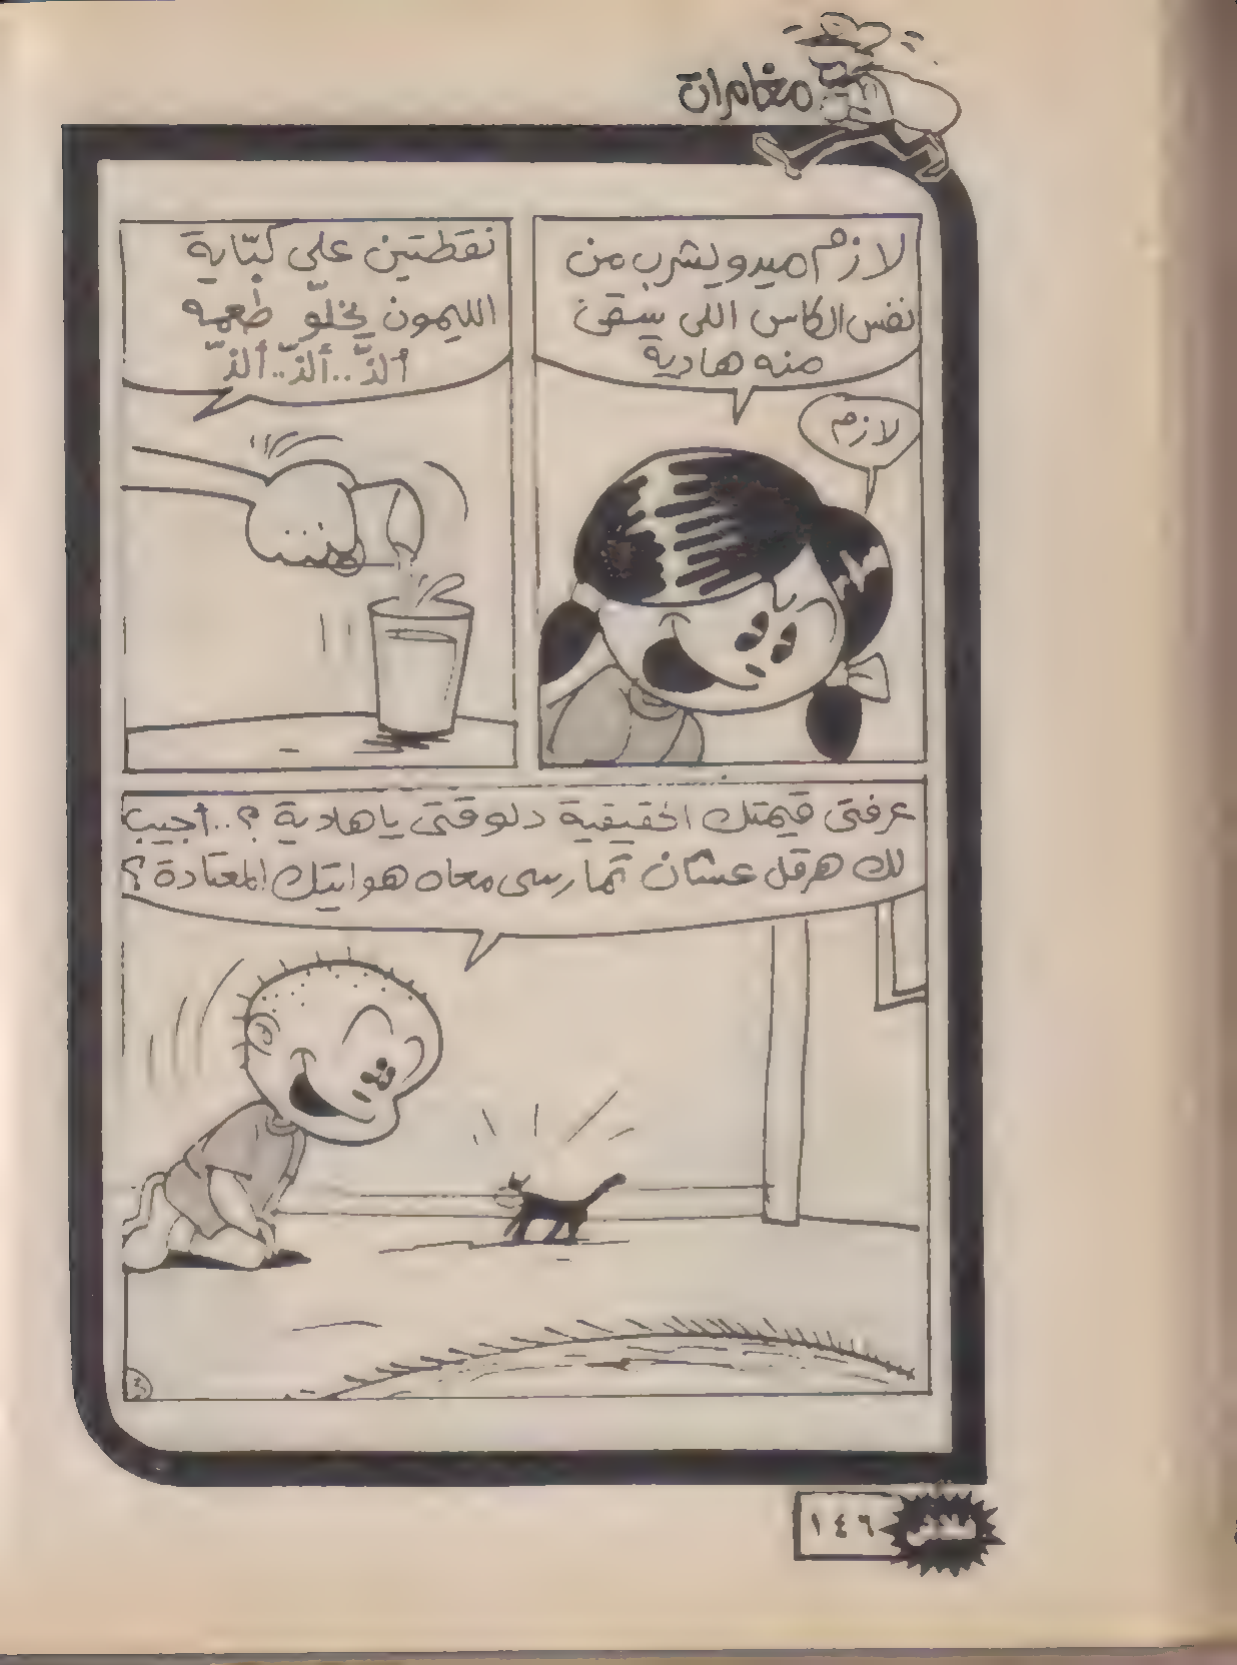 مغامرات
لازم ميدو يشرب من
نفس الكاس اللى سقى
منه هادية
لازم
نقطتين على كبّاية
الليمون يخلّو طعمه
ألذّ..ألذّ..ألذّ
عرفتى قيمتك الحقيقية دلوقتى ياهادية ؟..أجيب
لك هرقل عشان تمارسى معاه هوايتك المعتادة؟
١٤٦
فلاش